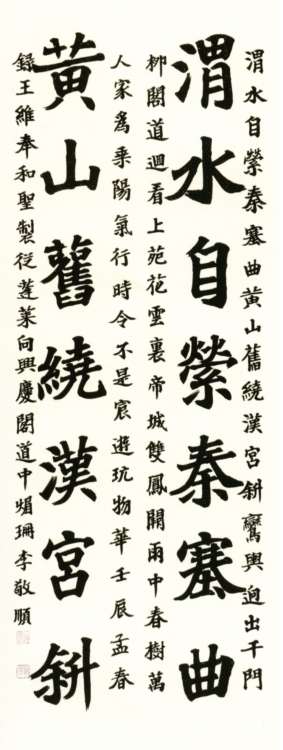 渭水自縈秦塞曲黃山舊繞漢宮斜鑾輿迥出千門
渭水自縈秦塞曲
柳閣道迴看上苑花雲裏帝城雙鳳闕雨中春樹萬
人家爲乘陽氣行時令不是宸遊玩物華壬辰孟春
黃山舊繞漢宮斜
錄王維奉和聖製從蓬萊向興慶閣道中珊李敬順